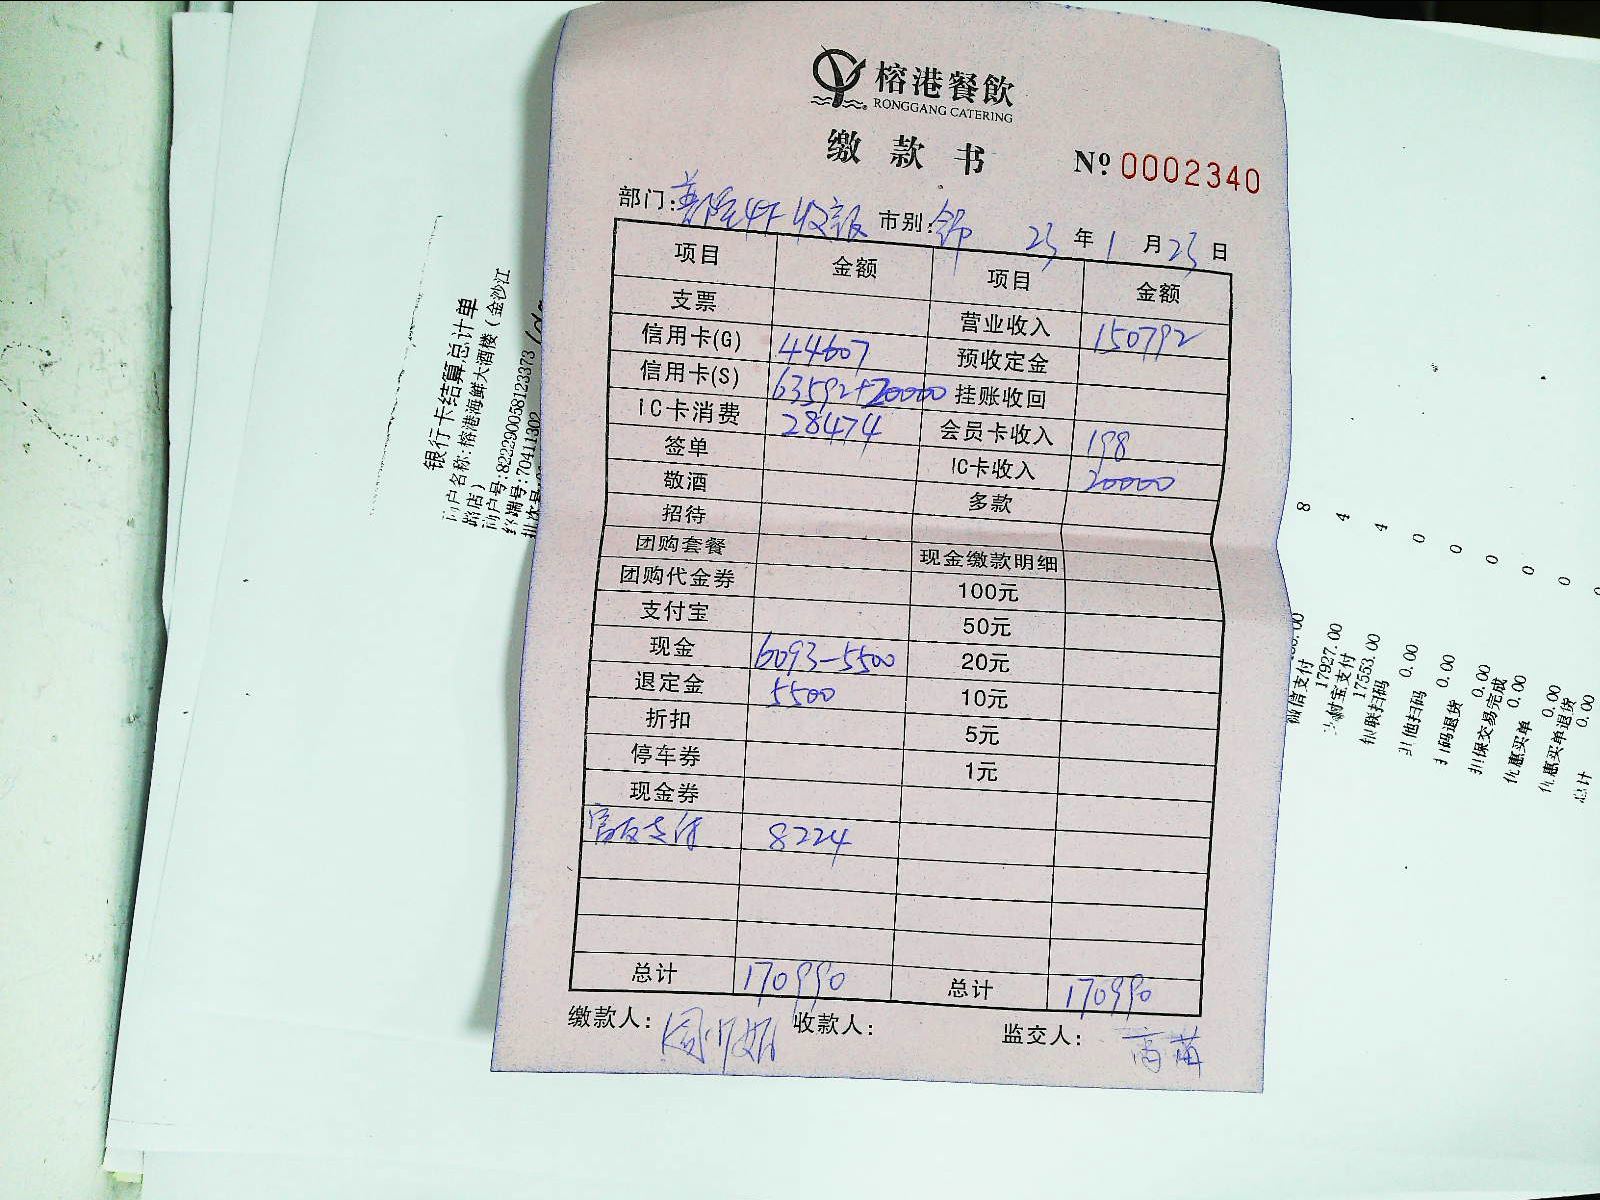 榕港餐飲
RONGGANG CATERING
缴款书 Nº 0002340
部门: 普陀4F 收银 市别: 23 年 1 月 23 日
项目 金额 项目 金额
支票 营业收入 150792
信用卡(G) 44607 预收定金
信用卡(S) 63592+20000 挂账收回
IC卡消费 28474 会员卡收入 198
签单 IC卡收入 20000
敬酒 多款
招待
团购套餐 现金缴款明细
团购代金券 100元
支付宝 50元
现金 6093-5500 20元
退定金 5500 10元
折扣 5元
停车券 1元
现金券
支付 8224
总计 170990 总计 170990
缴款人: 收款人: 监交人: 高苗
银行卡结算总计单
商户名称:榕港海鲜大酒楼(金沙江
路店)
商户号:822290058123373
终端号:70411302
批次号
微信支付 8
17927.00
支付宝支付 4
17553.00
银联扫码 4
0.00
其他扫码 0
0.00
扫码退货 0
0.00
担保交易完成 0
0.00
优惠买单 0
0.00
优惠买单退货 0
0.00
总计